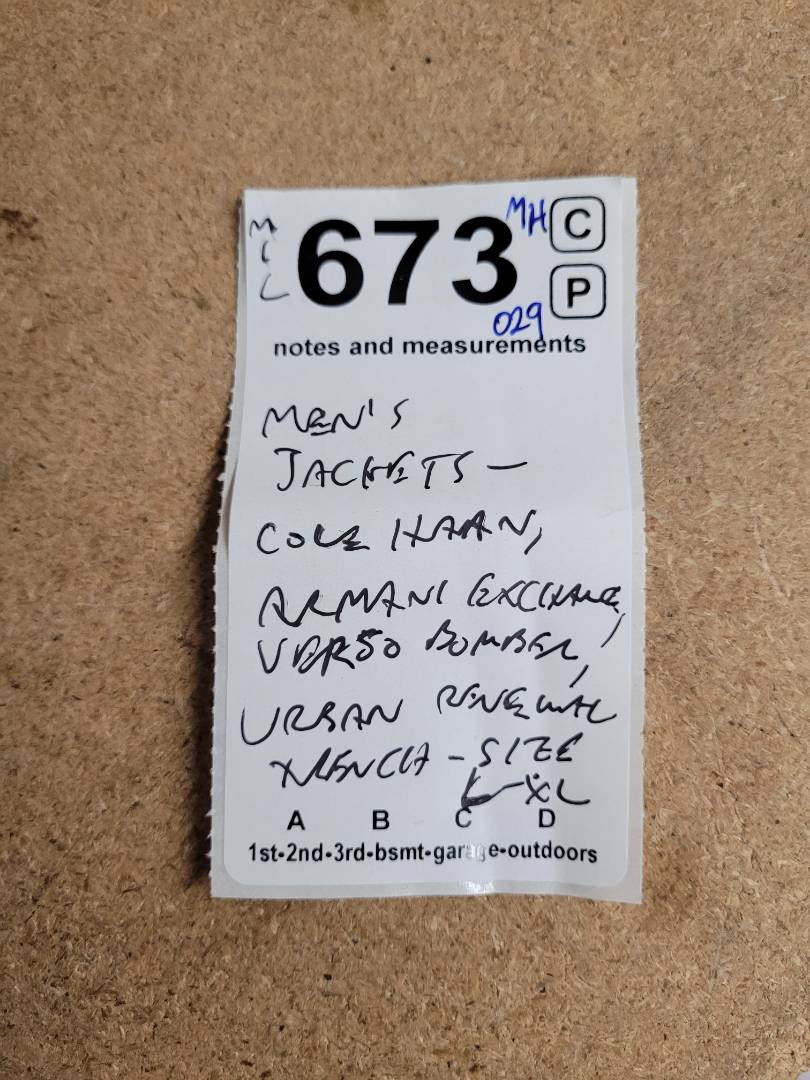 MIL
673
MH
C
P
029
notes and measurements
MEN'S
JACKETS —
COLE HAAN,
ARMANI EXCHANGE,
VERSO BOMBER,
URBAN RENEWAL
TRENCH - SIZE
L-XL
A B C D
1st-2nd-3rd-bsmt-garage-outdoors